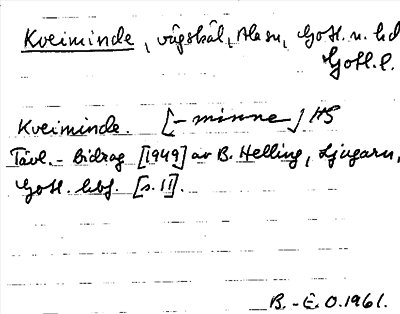 Kveiminde, vägskäl, Alsn, Gotl. n. hd
Gotl. l.
Kveiminde. [-minne] HS
Tävl.-bidrag [1949] av B. Helling, Ljugarn,
Gotl. hbf. [s. 11].
B.-E. O. 1961.